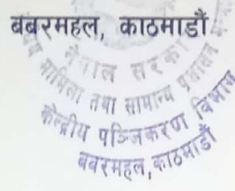 बबरमहल, काठमाडौं
नेपाल सरकार
मामिला तथा सामान्य प्रशासन
केन्द्रीय पञ्जिकरण विभाग
बबरमहल, काठमाडौं